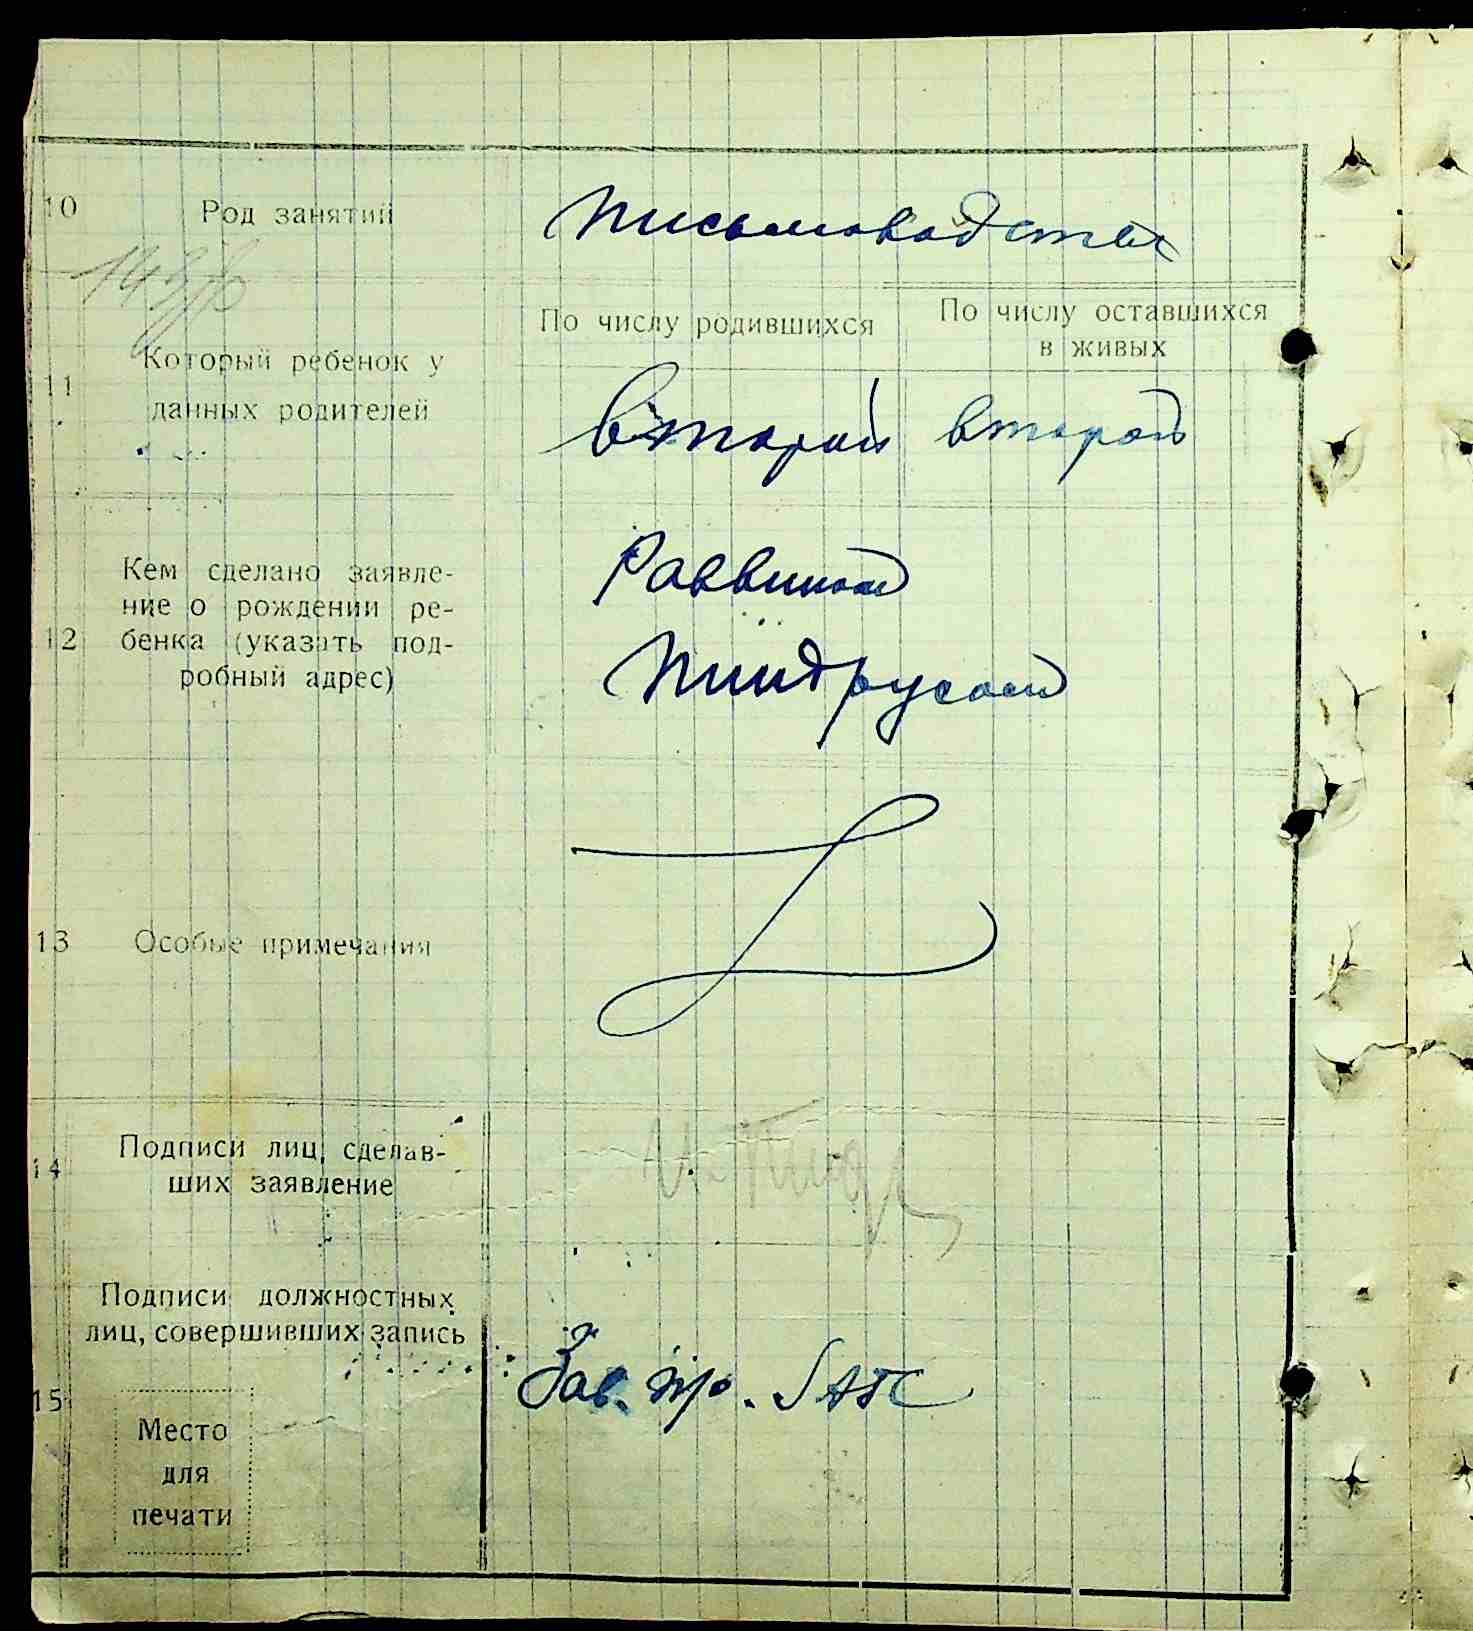 10 Род занятий письмоводитель
11 Который ребенок у
данных родителей
По числу родившихся
второй
По числу оставшихся
в живых
второй
12 Кем сделано заявле-
ние о рождении ре-
бенка (указать под-
робный адрес)
Раввином
Пиндрусом
13 Особые примечания
14 Подписи лиц, сделав-
ших заявление
15 Подписи должностных
лиц, совершивших запись
Зав. п/о. ЗАГС
Место
для
печати